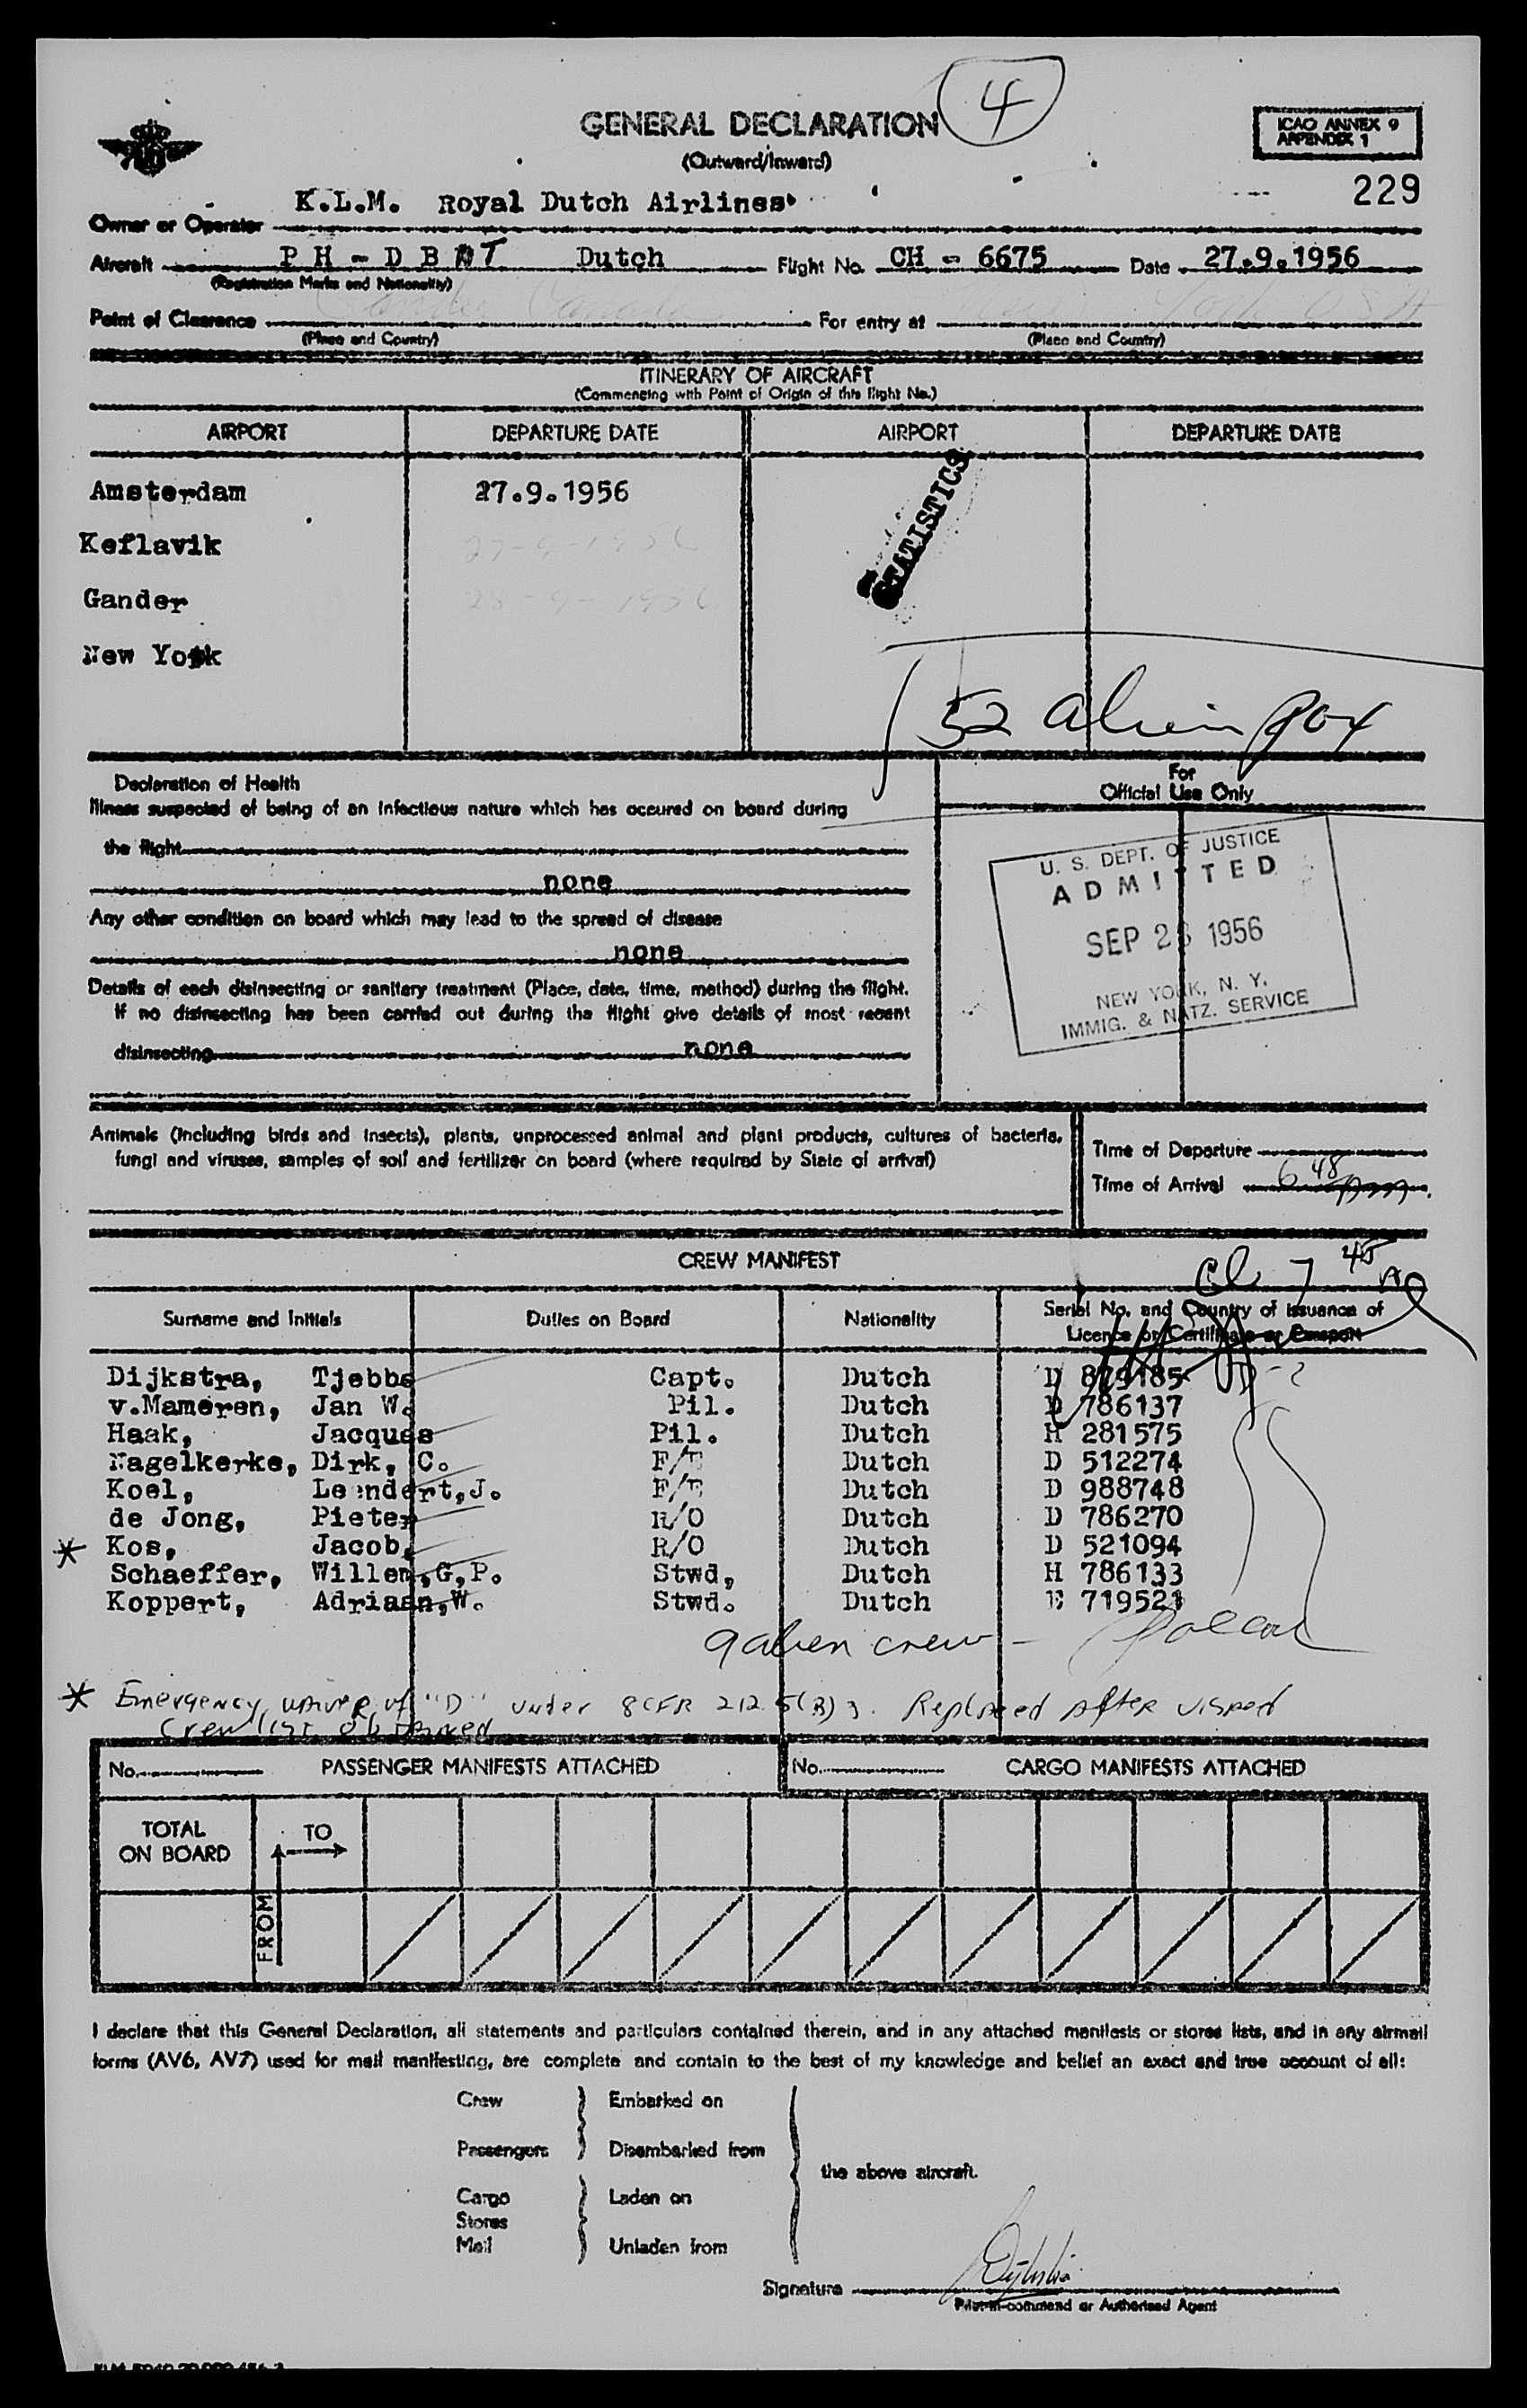 4
GENERAL DECLARATION
(Outward/Inward)
ICAO ANNEX 9
APPENDIX 1
229
Owner or Operator K.L.M. Royal Dutch Airlines
Aircraft P H - D B T Dutch Flight No. CH - 6675 Date 27.9.1956
(Registration Marks and Nationality)
Point of Clearance Gander Canada For entry at New York USA
(Place and Country) (Place and Country)
ITINERARY OF AIRCRAFT
(Commencing with Point of Origin of this flight No.)
AIRPORT DEPARTURE DATE AIRPORT DEPARTURE DATE
Amsterdam 27.9.1956
Keflavik 27-9-1956
Gander 28-9-1956
New York
STATISTICS
52 alien pax
Declaration of Health
Illness suspected of being of an infectious nature which has occured on board during
the flight
none
Any other condition on board which may lead to the spread of disease
none
Details of each disinsecting or sanitary treatment (Place, date, time, method) during the flight.
If no disinsecting has been carried out during the flight give details of most recent
disinsecting none
For
Official Use Only
U. S. DEPT. OF JUSTICE
ADMITTED
SEP 28 1956
NEW YORK, N. Y.
IMMIG. & NATZ. SERVICE
Animals (including birds and insects), plants, unprocessed animal and plant products, cultures of bacteria,
fungi and viruses, samples of soil and fertilizer on board (where required by State of arrival)
Time of Departure
Time of Arrival 6 48
CREW MANIFEST
7 45
Surname and Initials Duties on Board Nationality Serial No. and Country of Issuance of
Licence or Certificate or Passport
Dijkstra, Tjebbe Capt. Dutch D 879185
v.Mameren, Jan W. Pil. Dutch D 786137
Haak, Jacques Pil. Dutch H 281575
Nagelkerke, Dirk, C. F/E Dutch D 512274
Koel, Leendert,J. F/E Dutch D 988748
de Jong, Pieter R/O Dutch D 786270
* Kos, Jacob, R/O Dutch D 521094
Schaeffer, Willem,G,P. Stwd, Dutch H 786133
Koppert, Adriaan,W. Stwd. Dutch E 719521
9 alien crew -
* Emergency waiver of "D" under 8 CFR 212.5(B)3. Replaced after visaed
crew list obtained
No. PASSENGER MANIFESTS ATTACHED No. CARGO MANIFESTS ATTACHED
TOTAL
ON BOARD
TO
FROM
I declare that this General Declaration, all statements and particulars contained therein, and in any attached manifests or stores lists, and in any airmail
forms (AV6, AV7) used for mail manifesting, are complete and contain to the best of my knowledge and belief an exact and true account of all:
Crew Embarked on
Passengers Disembarked from
the above aircraft.
Cargo Laden on
Stores
Mail Unladen from
Signature
Pilot-in-command or Authorised Agent